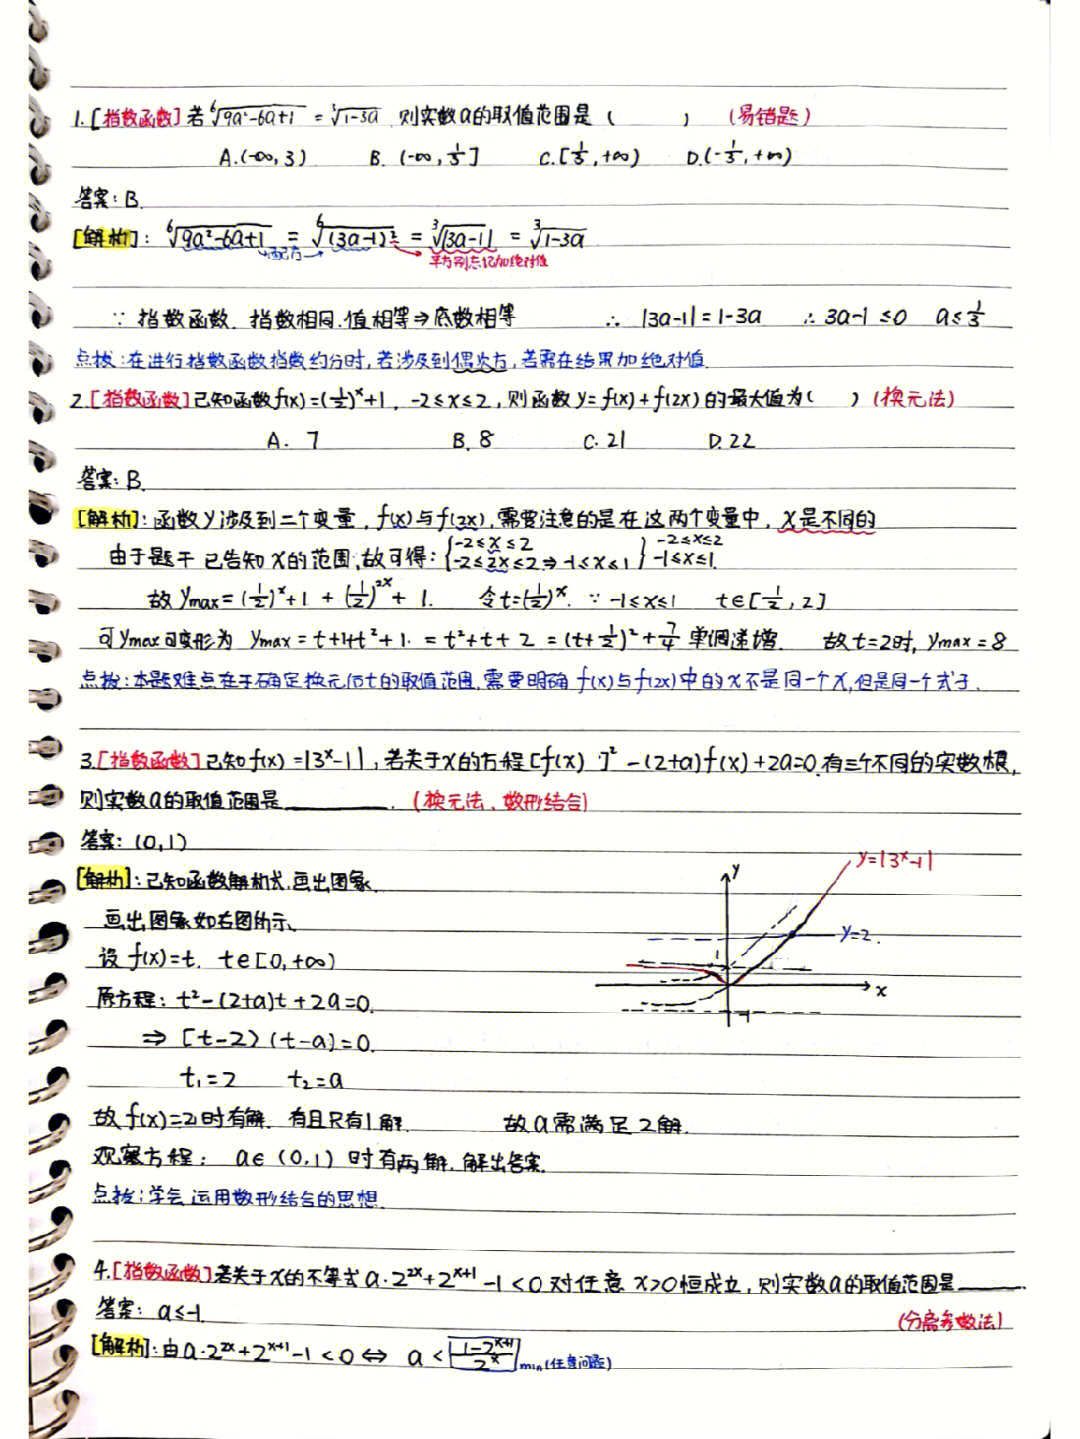 1.[指数函数]若⁶√9a²-6a+1 = ³√1-3a 则实数a的取值范围是( ) (易错题)
A.(-∞,3) B.(-∞,1/3] C.[1/3,+∞) D.(-1/3,+∞)
答案:B.
[解析]: ⁶√9a²-6a+1 = ⁶√(3a-1)² = ³√|3a-1| = ³√1-3a
配方 平方别忘记加绝对值
∵ 指数函数.指数相同.值相等⇒底数相等 ∴ |3a-1|=1-3a ∴ 3a-1≤0 a≤1/3
点拨:在进行指数函数指数约分时,若涉及到偶次方,若需在结果加绝对值.
2.[指数函数]已知函数f(x)=(1/2)^x+1, -2≤x≤2,则函数y=f(x)+f(2x)的最大值为( ) (换元法)
A. 7 B. 8 C. 21 D. 22
答案:B.
[解析]:函数y涉及到二个变量,f(x)与f(2x),需要注意的是在这两个变量中,x是不同的
由于题干已告知x的范围,故可得:{-2≤x≤2 -2≤2x≤2⇒-1≤x≤1} -2≤x≤2 -1≤x≤1.
故ymax=(1/2)^x+1+(1/2)^2x+1. 令t=(1/2)^x. ∵ -1≤x≤1 t∈[1/2,2]
可ymax可变形为 ymax=t+1+t²+1.=t²+t+2=(t+1/2)²+7/4 单调递增. 故t=2时,ymax=8
点拨:本题难点在于确定换元后t的取值范围,需要明确f(x)与f(2x)中的x不是同一个x,但是同一个式子.
3.[指数函数]已知f(x)=|3^x-1|,若关于x的方程[f(x)]²-(2+a)f(x)+2a=0.有三个不同的实数根,
则实数a的取值范围是________. (换元法、数形结合)
答案:(0,1)
[解析]:已知函数解析式,画出图象.
画出图象如右图所示.
设f(x)=t. t∈[0,+∞)
原方程:t²-(2+a)t+2a=0.
⇒ [t-2)(t-a)=0.
t₁=2 t₂=a
y
y=|3^x-1|
y=2.
x
-1
故f(x)=2时有解.有且只有1解. 故a需满足2解.
观察方程: a∈(0,1)时有两解.解出答案.
点拨:学会运用数形结合的思想.
4.[指数函数]若关于x的不等式a·2^2x+2^x+1-1<0对任意x>0恒成立,则实数a的取值范围是________.
答案: a≤-1. (分离参数法)
[解析]:由a·2^2x+2^x+1-1<0 ⇔ a<[1-2^x+1/2^x]min(任意问题)